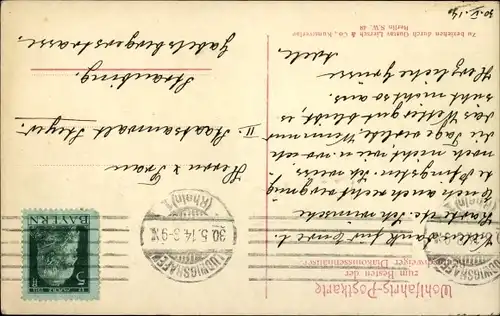 Wohlfahrts-Postkarte
zum Besten der
Zu beziehen durch Gustav Liersch & Co., Kunstverlag
Berlin S.W. 48
30. V. 14.
Dank für Eure l.
Karte. Ich wünsche
Euch auch recht vergnügte
Pfingsten. Ich weiss
noch nicht, wie u. wo ich
die Tage verlebe. Wenn nur
das Wetter gut bleibt, es
sieht nicht so aus.
Herzliche Grüsse
Herrn u. Frau
II. Staatsanwalt
Straubing.
Gabelsbergerstrasse.
BAYERN
5
LUDWIGSHAFEN
30.5.14. 8-9 V.
(Rhein) 1